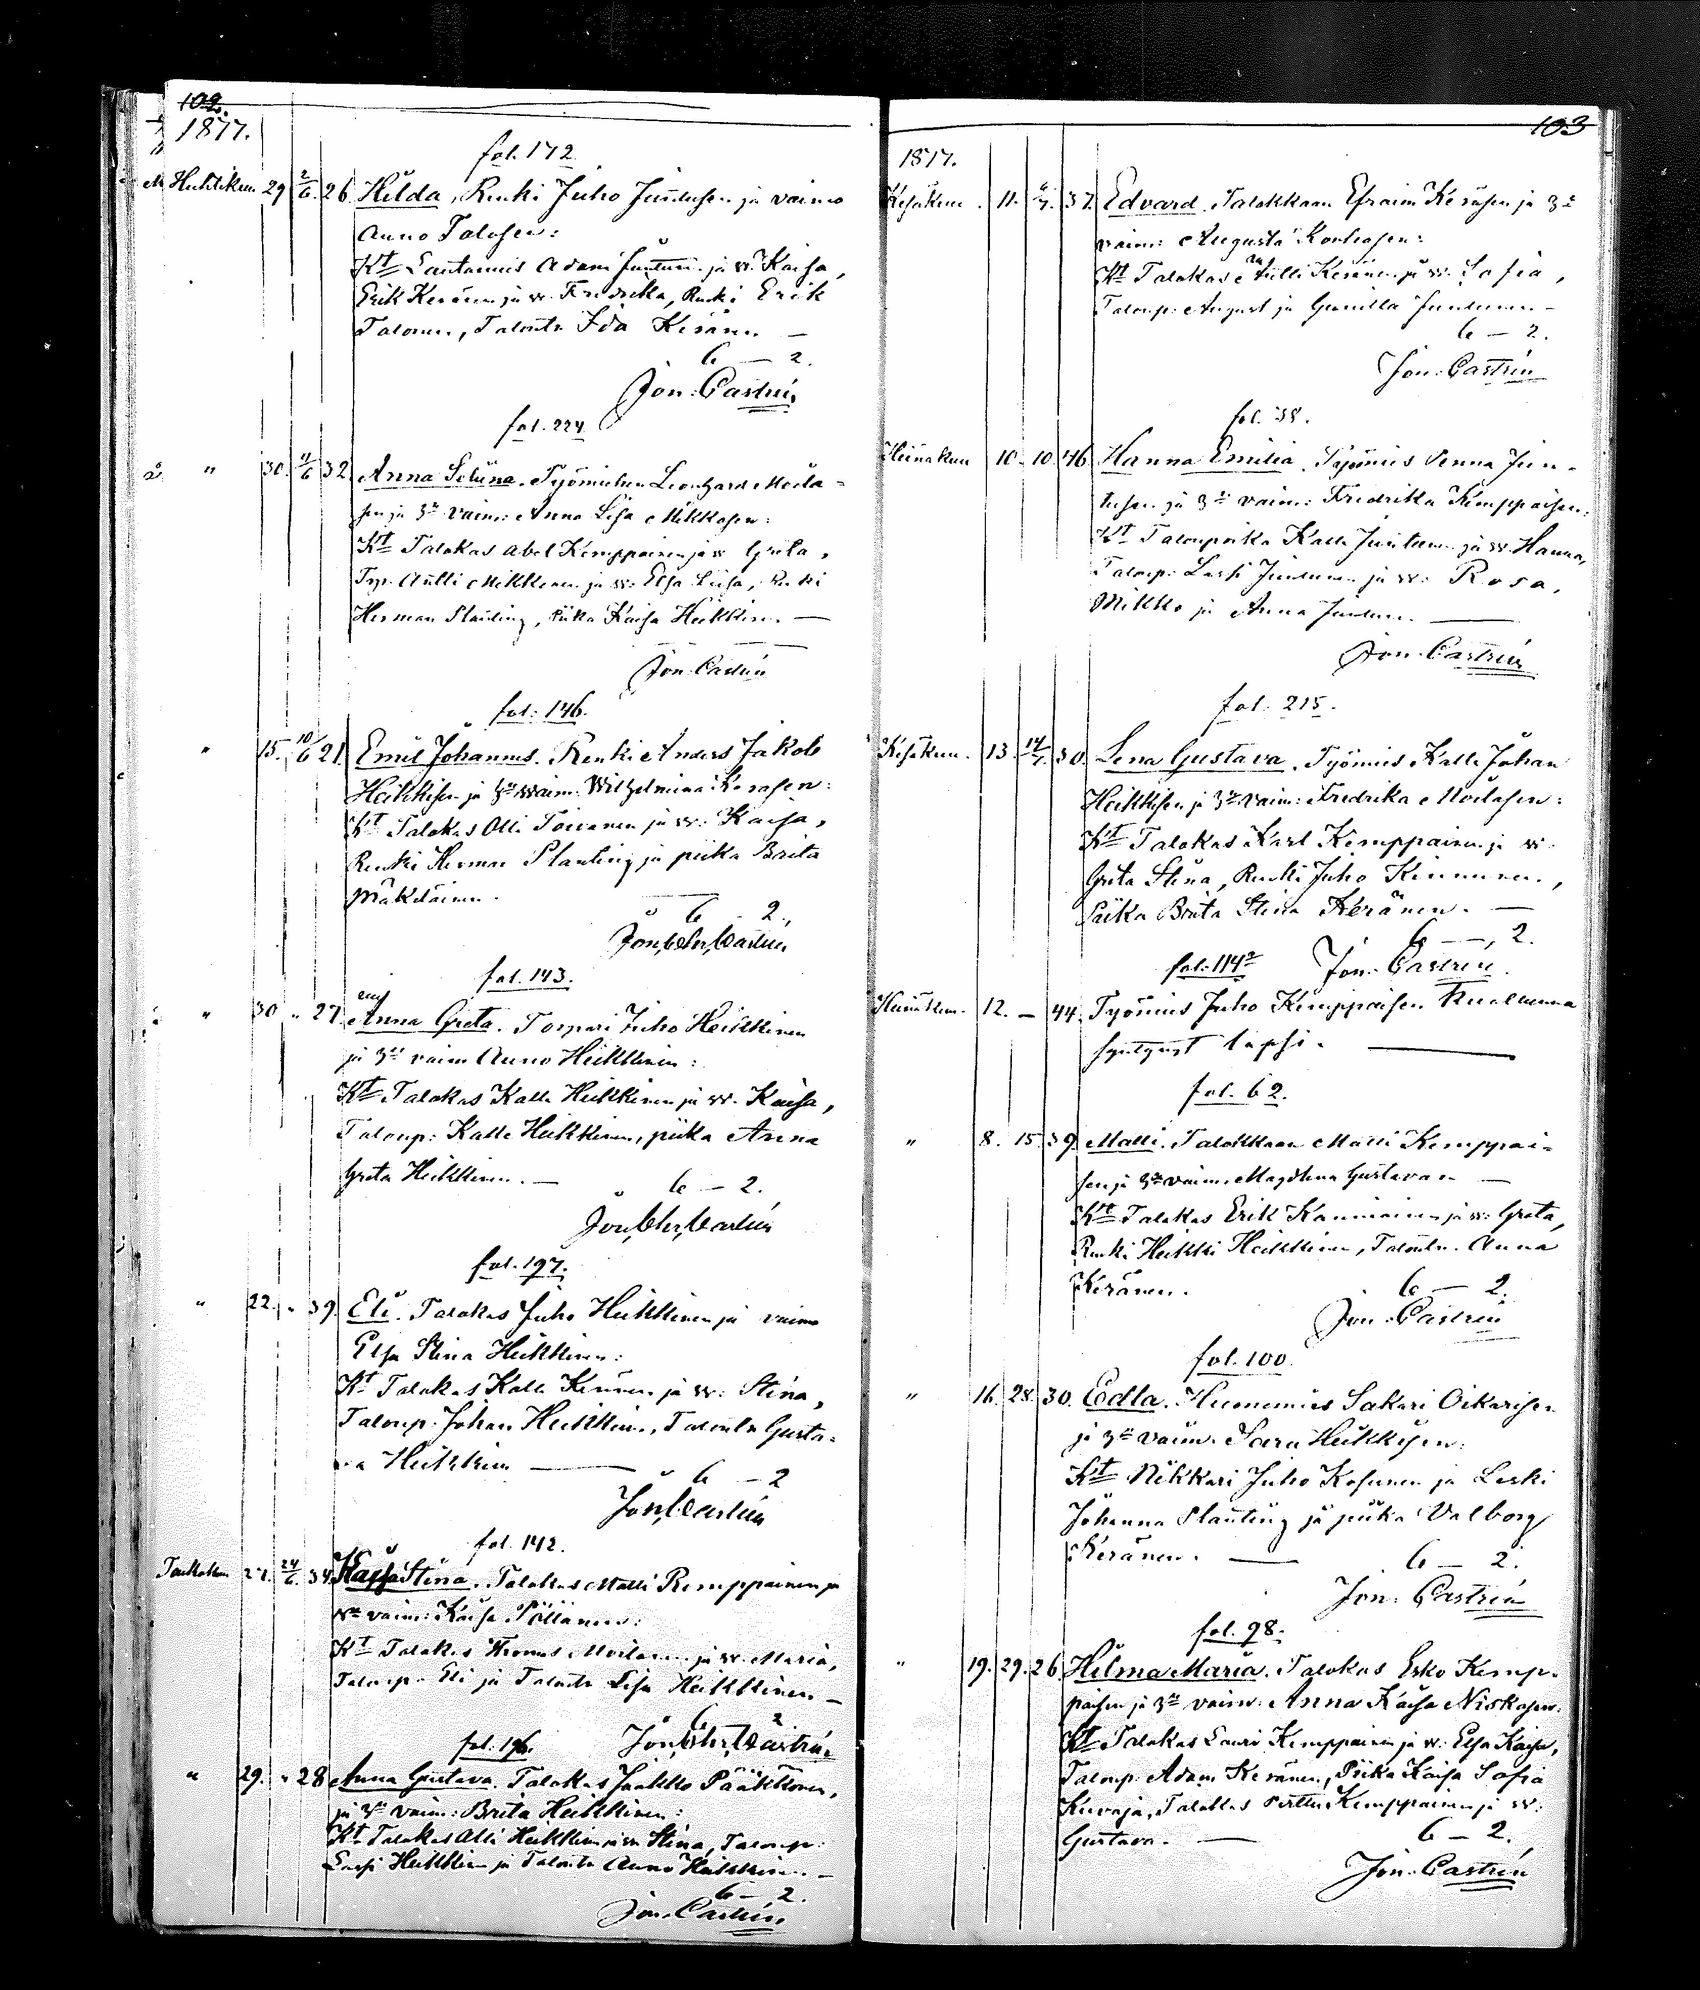 102.
1877.
fol. 172
Huhtikuu 29 2/6 26 Hilda, Renki Juho Juntusen ja vaimo
Anno Talosen:
Kt Lautamies Adam Juntunen ja w. Kaisa,
Erik Keränen ja w. Fredrika, Renki Erik
Talonen, Talontr Ida Keränen —
6 — 2.
Jon: Castrén
fol. 224
" 30. 4/6 32. Anna Selina. Työmiehen Leonhard Moila-
sen ja 3n vaim: Anna Lisa Mikkosen:
Kt Talokas Abel Kemppainen ja w Greta,
Työ. Antti Mikkonen ja w: Elsa Liisa, Renki
Herman Planting, Piika Kaisa Heikkinen. —
Jon: Castrén
fol: 146.
" 15. 10/6 21. Emil Johannes. Renki Anders Jakob
Heikkisen ja 3n vaim: Wilhelmina Kerasen:
Kt Talokas Olli Toivanen ja w: Kaisa,
Renki Herman Planting ja piika Brita
Mäkeläinen.
6 2.
Jon, Chr, Castrén
fol. 143.
30 " 27. Anna Greta. Torpari Juho Heikkinen
ja 3n vaim Anno Heikkinen:
Kt Talokas Kalle Heikkinen ja w. Kaisa,
Talonp: Kalle Heikkinen, piika Anna
Greta Heikkinen. —
6 — 2.
Jon, Chr, Castrén
fol. 197.
" 22. " 39. Eli. Talokas Juho Heikkinen ja vaimo
Elsa Stina Heikkinen:
Kt Talokas Kalle Keränen ja w: Stina,
Talonp. Johan Heikkinen, Talontr Gusta-
va Heikkinen —
6 — 2
Jon, Castrén
fol. 142.
Toukokuu 27. 24/6 34. Kaisa Stina. Talokas Matti Kemppainen ja
3n vaim: Kaisa Pöllänen:
Kt Talokas Thomas Moilanen ja w. Maria,
Talonp. Eli ja Talontr Lisa Heikkinen —
6 2
Jon, Chr, Castrén
fol. 196.
" 29. " 28 Anna Gustava. Talokas Jaakko Pääkkönen,
ja 3n vaim: Brita Heikkinen:
Kt Talokas Olli Heikkinen ja w Stina, Talonp:
Lassi Heikkinen ja Talontr Anno Heikkinen. —
6 — 2.
Jon: Castrén
103
1877.
Kesäkuu. 11. 4/7. 37. Edvard. Talokkaan Efraim Keräsen ja 3n
vaim: Augusta Korhosen:
Kt Talokas Antti Keränen ja w. Sofia,
Talonp: August ja Gunilla Juntunen —
6 — 2.
Jon: Castrén
fol. 38.
Heinäkuu 10. 10. 46. Hanna Emilia. Työmies Penna Jun-
tusen ja 3n vaim: Fredrika Kemppaisen:
Kt Talonpoika Kalle Juntunen ja w. Hanna,
Talonp: Lassi Juntunen ja w: Rosa,
Mikko ja Anna Juntunen. —
Jon: Castrén
fol: 215.
Kesäkuu. 13 14/7. 30. Lena Gustava. Työmies Kalle Johan
Heikkisen ja 3n vaim: Fredrika Moilasen:
Kt Talokas Karl Kemppainen ja w.
Greta Stina, Renki Juho Kinnunen,
Piika Brita Stina Keränen. —
6 —, 2.
Jon: Castrén.
fol: 114 2
Heinäkuu. 12. — 44. Työmies Juho Kemppaisen kuolleena
syntynyt lapsi. —
fol. 62.
" 8. 15. 39. Matti. Talokkaan Matti Kemppai-
sen ja 3n vaim. Magdlena Gustavan —
Kt Talokas Erik Kanniainen ja w: Greta,
Renki Heikki Heikkinen, Talontr. Anna
Keränen.
6 — 2.
Jon: Castrén
fol. 100.
" 16. 28. 30. Edla. Huonemies Sakari Oikarisen
ja 3n vaim. Sara Heikkisen:
Kt Nikkari Juho Kosunen ja Leski
Johanna Planting ja piika Valborg
Keränen. —
6 — 2.
Jon: Castrén
fol. 98.
" 19. 29. 26 Hilma Maria. Talokas Esko Kemp-
paisen ja 3n vaim: Anna Kaisa Niskasen:
Kt Talokas Lauri Kemppainen ja w: Elsa Kaisa,
Talonp. Adam Keränen, Piika Kaisa Sofia
Kuvaja, Talokas Perttu Kemppainen ja w:
Gustava. —
6 — 2.
Jon: Castrén